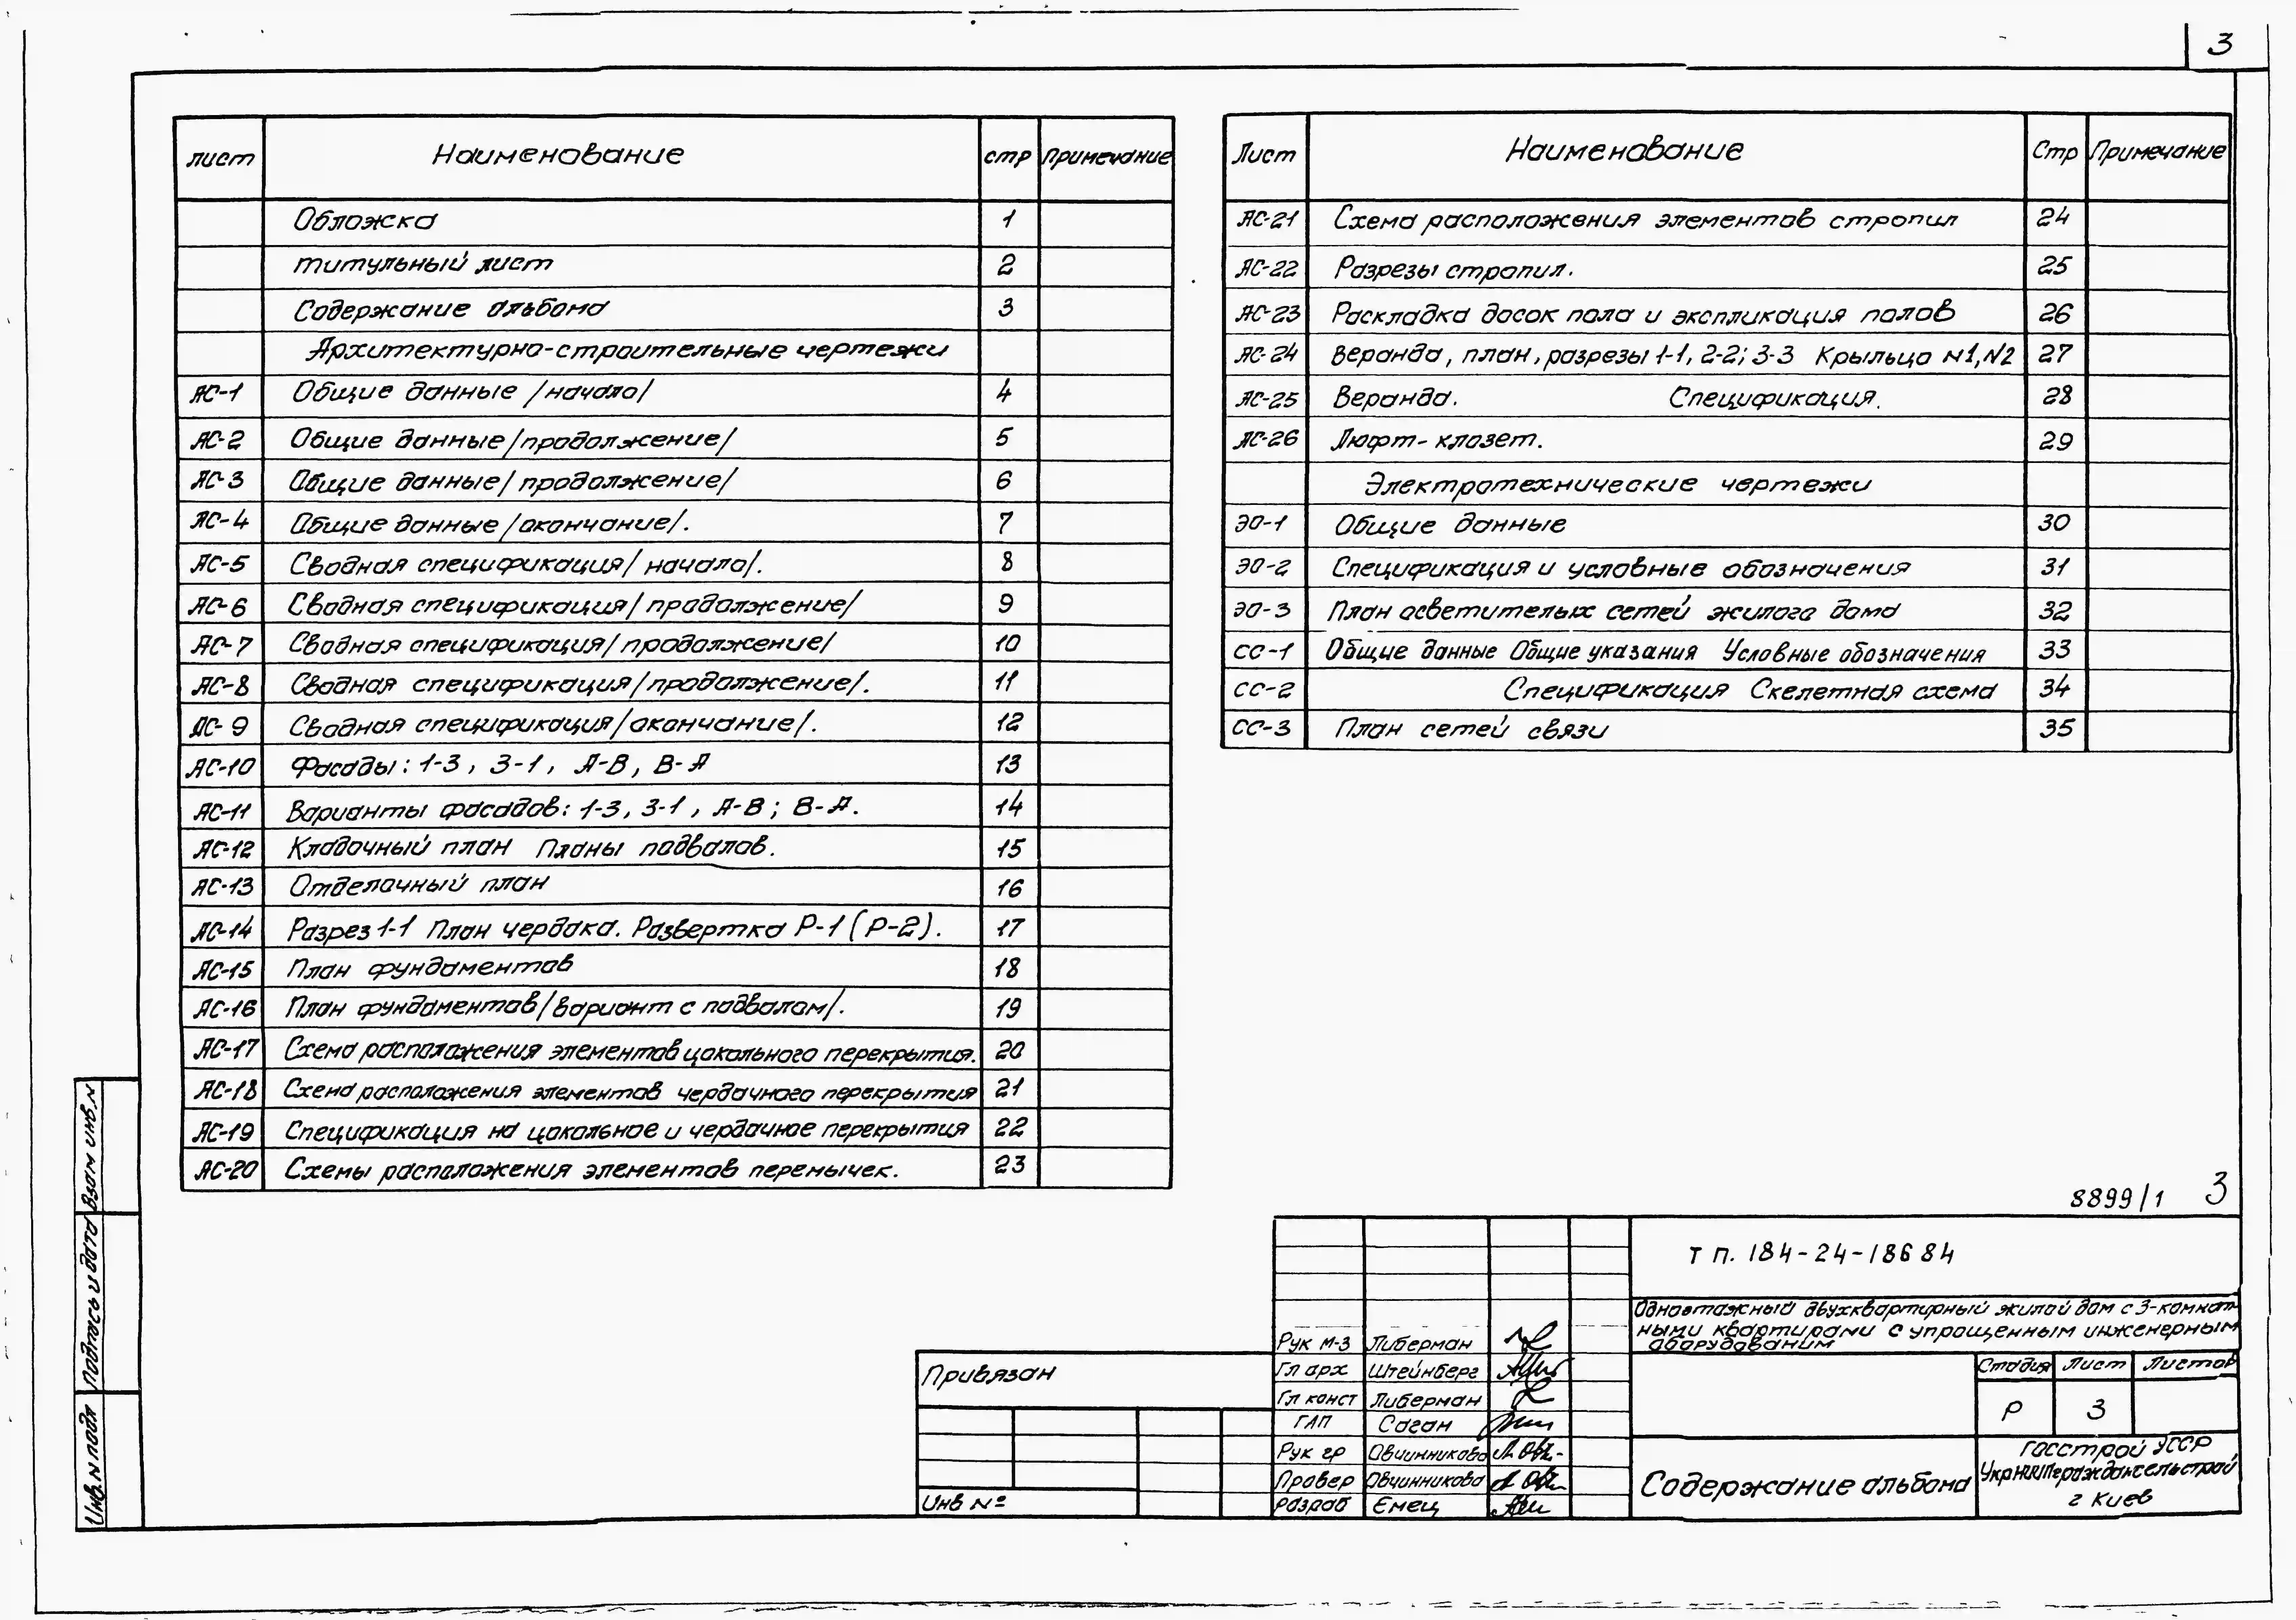 3
лист Наименование стр Примечание
Обложка 1
титульный лист 2
Содержание альбома 3
Архитектурно-строительные чертежи
АС-1 Общие данные /начало/ 4
АС-2 Общие данные /продолжение/ 5
АС-3 Общие данные /продолжение/ 6
АС-4 Общие данные /окончание/. 7
АС-5 Сводная спецификация /начало/. 8
АС-6 Сводная спецификация /продолжение/ 9
АС-7 Сводная спецификация /продолжение/ 10
АС-8 Сводная спецификация /продолжение/. 11
АС-9 Сводная спецификация /окончание/. 12
АС-10 Фасады: 1-3, 3-1, А-В, В-А 13
АС-11 Варианты фасадов: 1-3, 3-1, А-В; В-А. 14
АС-12 Кладочный план Планы подвалов. 15
АС-13 Отделочный план 16
АС-14 Разрез 1-1 План чердака. Развертка Р-1 (Р-2). 17
АС-15 План фундаментов 18
АС-16 План фундаментов /вариант с подвалом/. 19
АС-17 Схема расположения элементов цокольного перекрытия. 20
АС-18 Схема расположения элементов чердачного перекрытия 21
АС-19 Спецификация на цокольное и чердачное перекрытия 22
АС-20 Схемы расположения элементов перемычек. 23
Лист Наименование Стр Примечание
АС-21 Схема расположения элементов стропил 24
АС-22 Разрезы стропил. 25
АС-23 Раскладка досок пола и экспликация полов 26
АС-24 Веранда, план, разрезы 1-1, 2-2; 3-3 Крыльцо N1, N2 27
АС-25 Веранда. Спецификация. 28
АС-26 Люфт-клозет. 29
Электротехнические чертежи
ЭО-1 Общие данные 30
ЭО-2 Спецификация и условные обозначения 31
ЭО-3 План осветительых сетей жилого дома 32
СС-1 Общие данные Общие указания Условные обозначения 33
СС-2 Спецификация Скелетная схема 34
СС-3 План сетей связи 35
8899/1 3
Т П. 184-24-186 84
Одноэтажный двухквартирный жилой дом с 3-комнат-
ными квартирами с упрощенным инженерным
оборудованим
Рук М-3 Либерман
Гл арх Штейнберг
Гл конст Либерман
ГАП Саган
Рук гр Овчинникова
Провер Овчинникова
Разраб Емец
Стадия Лист Листов
Р 3
Содержание альбома
Госстрой УССР
УкрНИИПграждансельстрой
г Киев
Привязан
Инв №
Взам инв. N
Подпись и дата
Инв. N подл